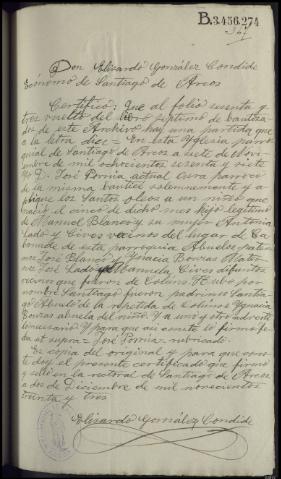 B.3.456.274
Don Elisardo González Condide
Ecónomo de Santiago de Arcos
Certifico: Que al folio sesenta y
tres vuelto del libro septimo de bautiza-
dos de este Archivo hay una partida que
a la letra dice = En esta Yglesia parro-
quial de Santiago de Arcos a siete de
mil ochocientos sesenta y siete
Yo D. José Pornia actual cura parroco
de la misma bauticé solemnemente y a-
pliqué los Santos oleos a un niño que
nació el cinco de dicho mes hijo legitimo
de Manuel Blanco y su mujer Antonia
Lado y Cives vecinos del lugar de
de esta parroquia Abuelos pater-
nos José Blanco y Ygnacia Bouzas Mater-
nos José Lado y Manuela Cives difuntos
vecinos que fueron de Hubo por
nombre Santiago fueron padrinos Santia-
go de la repetida de Ygnacia
Bouzas abuela del niño. Y a uno y otro adverti
lo necesario Y para que asi conste lo firmo fe-
cha ut supra = José Pornia = rubricado.
Es copia del original y para que cons-
te doy el presente certificado que firmo
y sello en la rectoral de Santiago de Arcos
a dos de Diciembre de mil novecientos
treinta y tres
Elisardo González Condide